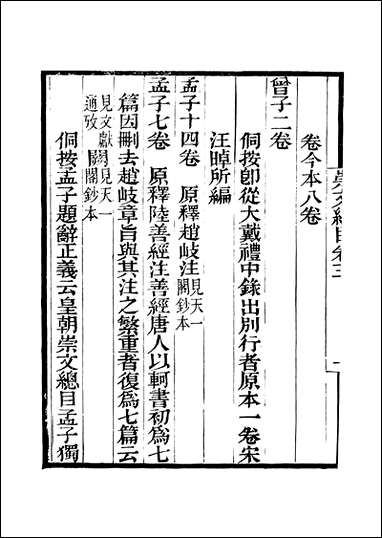 崇文總目卷三
一
卷今本八卷
曾子二卷
侗按卽從大戴禮中錄出別行者原本一卷宋
汪晫所編
孟子十四卷 原釋趙岐注見天一閣鈔本
孟子七卷 原釋陸善經注善經唐人以軻書初爲七
篇因刪去趙岐章旨與其注之繁重者復爲七篇云
見文獻通攷 見天一閣鈔本
侗按孟子題辭正義云皇朝崇文總目孟子獨